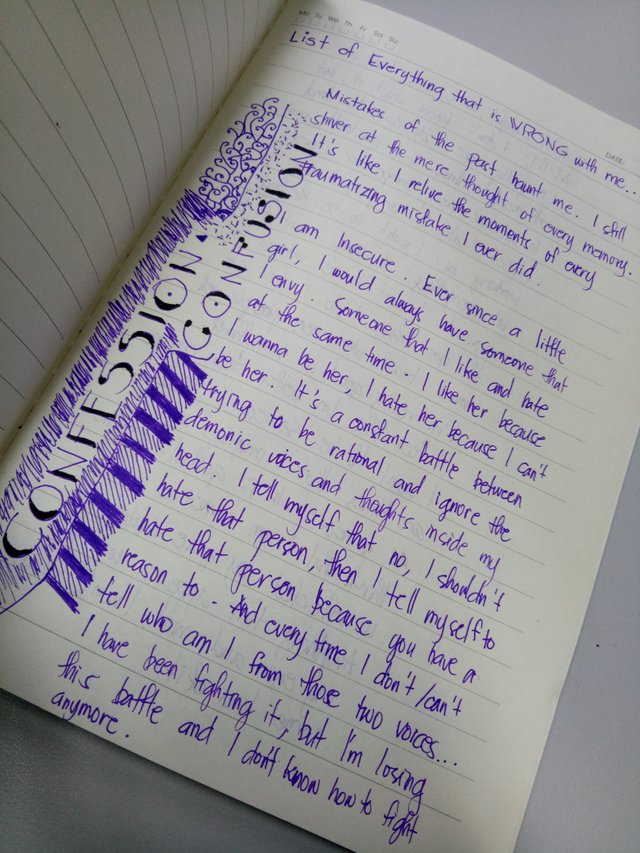 Mo Tu We Th Fr Sa Su
DATE:
List of Everything that is WRONG with me...
Mistakes of the past haunt me. I still
shiver at the mere thought of every memory.
It's like I relive the moments of every
traumatizing mistake I ever did.
I am Insecure. Ever since a little
girl, I would always have someone that
I envy. Someone that I like and hate
at the same time. I like her because
I wanna be her, I hate her because I can't
be her. It's a constant battle between
trying to be rational and ignore the
demonic voices and thoughts inside my
head. I tell myself that no, I shouldn't
hate that person, then I tell myself to
hate that person because you have a
reason to. And every time I don't/can't
tell who am I from those two voices...
I have been fighting it, but I'm losing
this battle and I don't know how to fight
anymore.
CONFESSION
CONFUSION